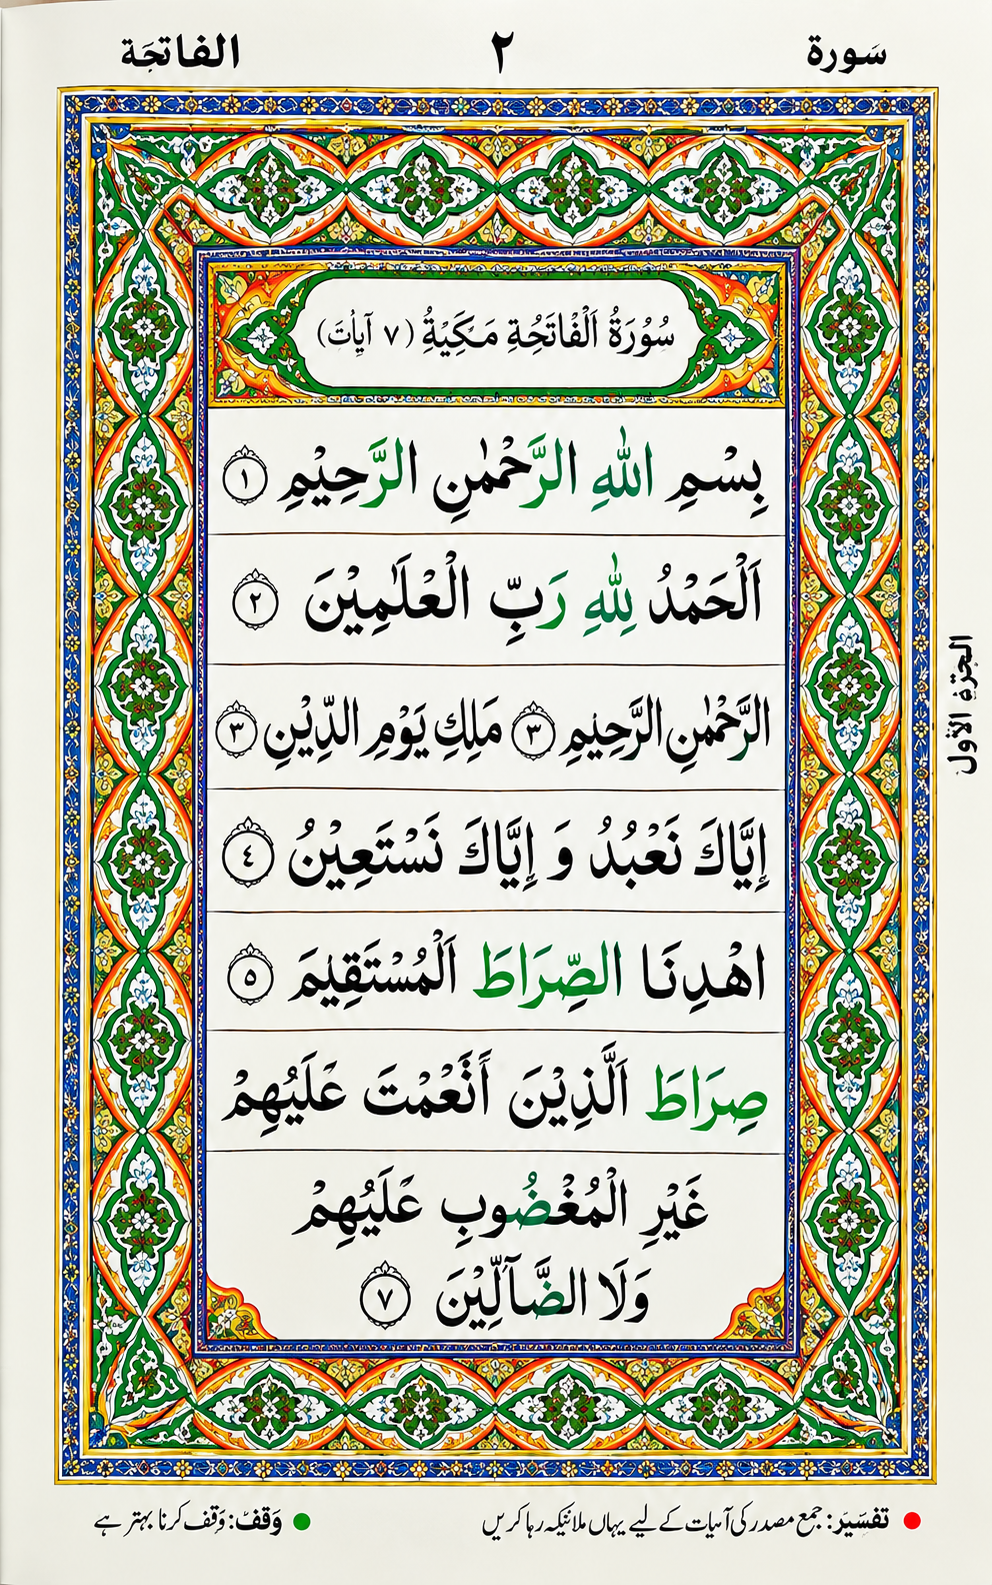 سَورة ٢ الفاتحَة
سُوْرَةُ اَلْفَاتَحُةِ مَكِّيَةُ (٧ آيات)
بِسْمِ اللهِ الرَّحْمٰنِ الرَّحِيْمِ ١
اَلْحَمْدُ لِلّٰهِ رَبِّ الْعٰلَمِيْنَ ٢
الرَّحْمٰنِ الرَّحِيْمِ ٣ مَلِكِ يَوْمِ الدِّيْنِ ٣
إِيَّاكَ نَعْبُدُ وَ إِيَّاكَ نَسْتَعِيْنُ ٤
اهْدِنَا الصِّرَاطَ اَلْمُسْتَقِيْمَ ٥
صِرَاطَ اَلَّذِيْنَ أَنْعَمْتَ عَلَيْهِمْ
غَيْرِ الْمُغْضُوبِ عَلَيْهِمْ
وَلَا الضَّآلِّيْنَ ٧
الأول
تفسَیر: جمع مصدر کی آ کے لیے یہاں رہا کریں
وَقف: وَقف کرنا بہتر ہے